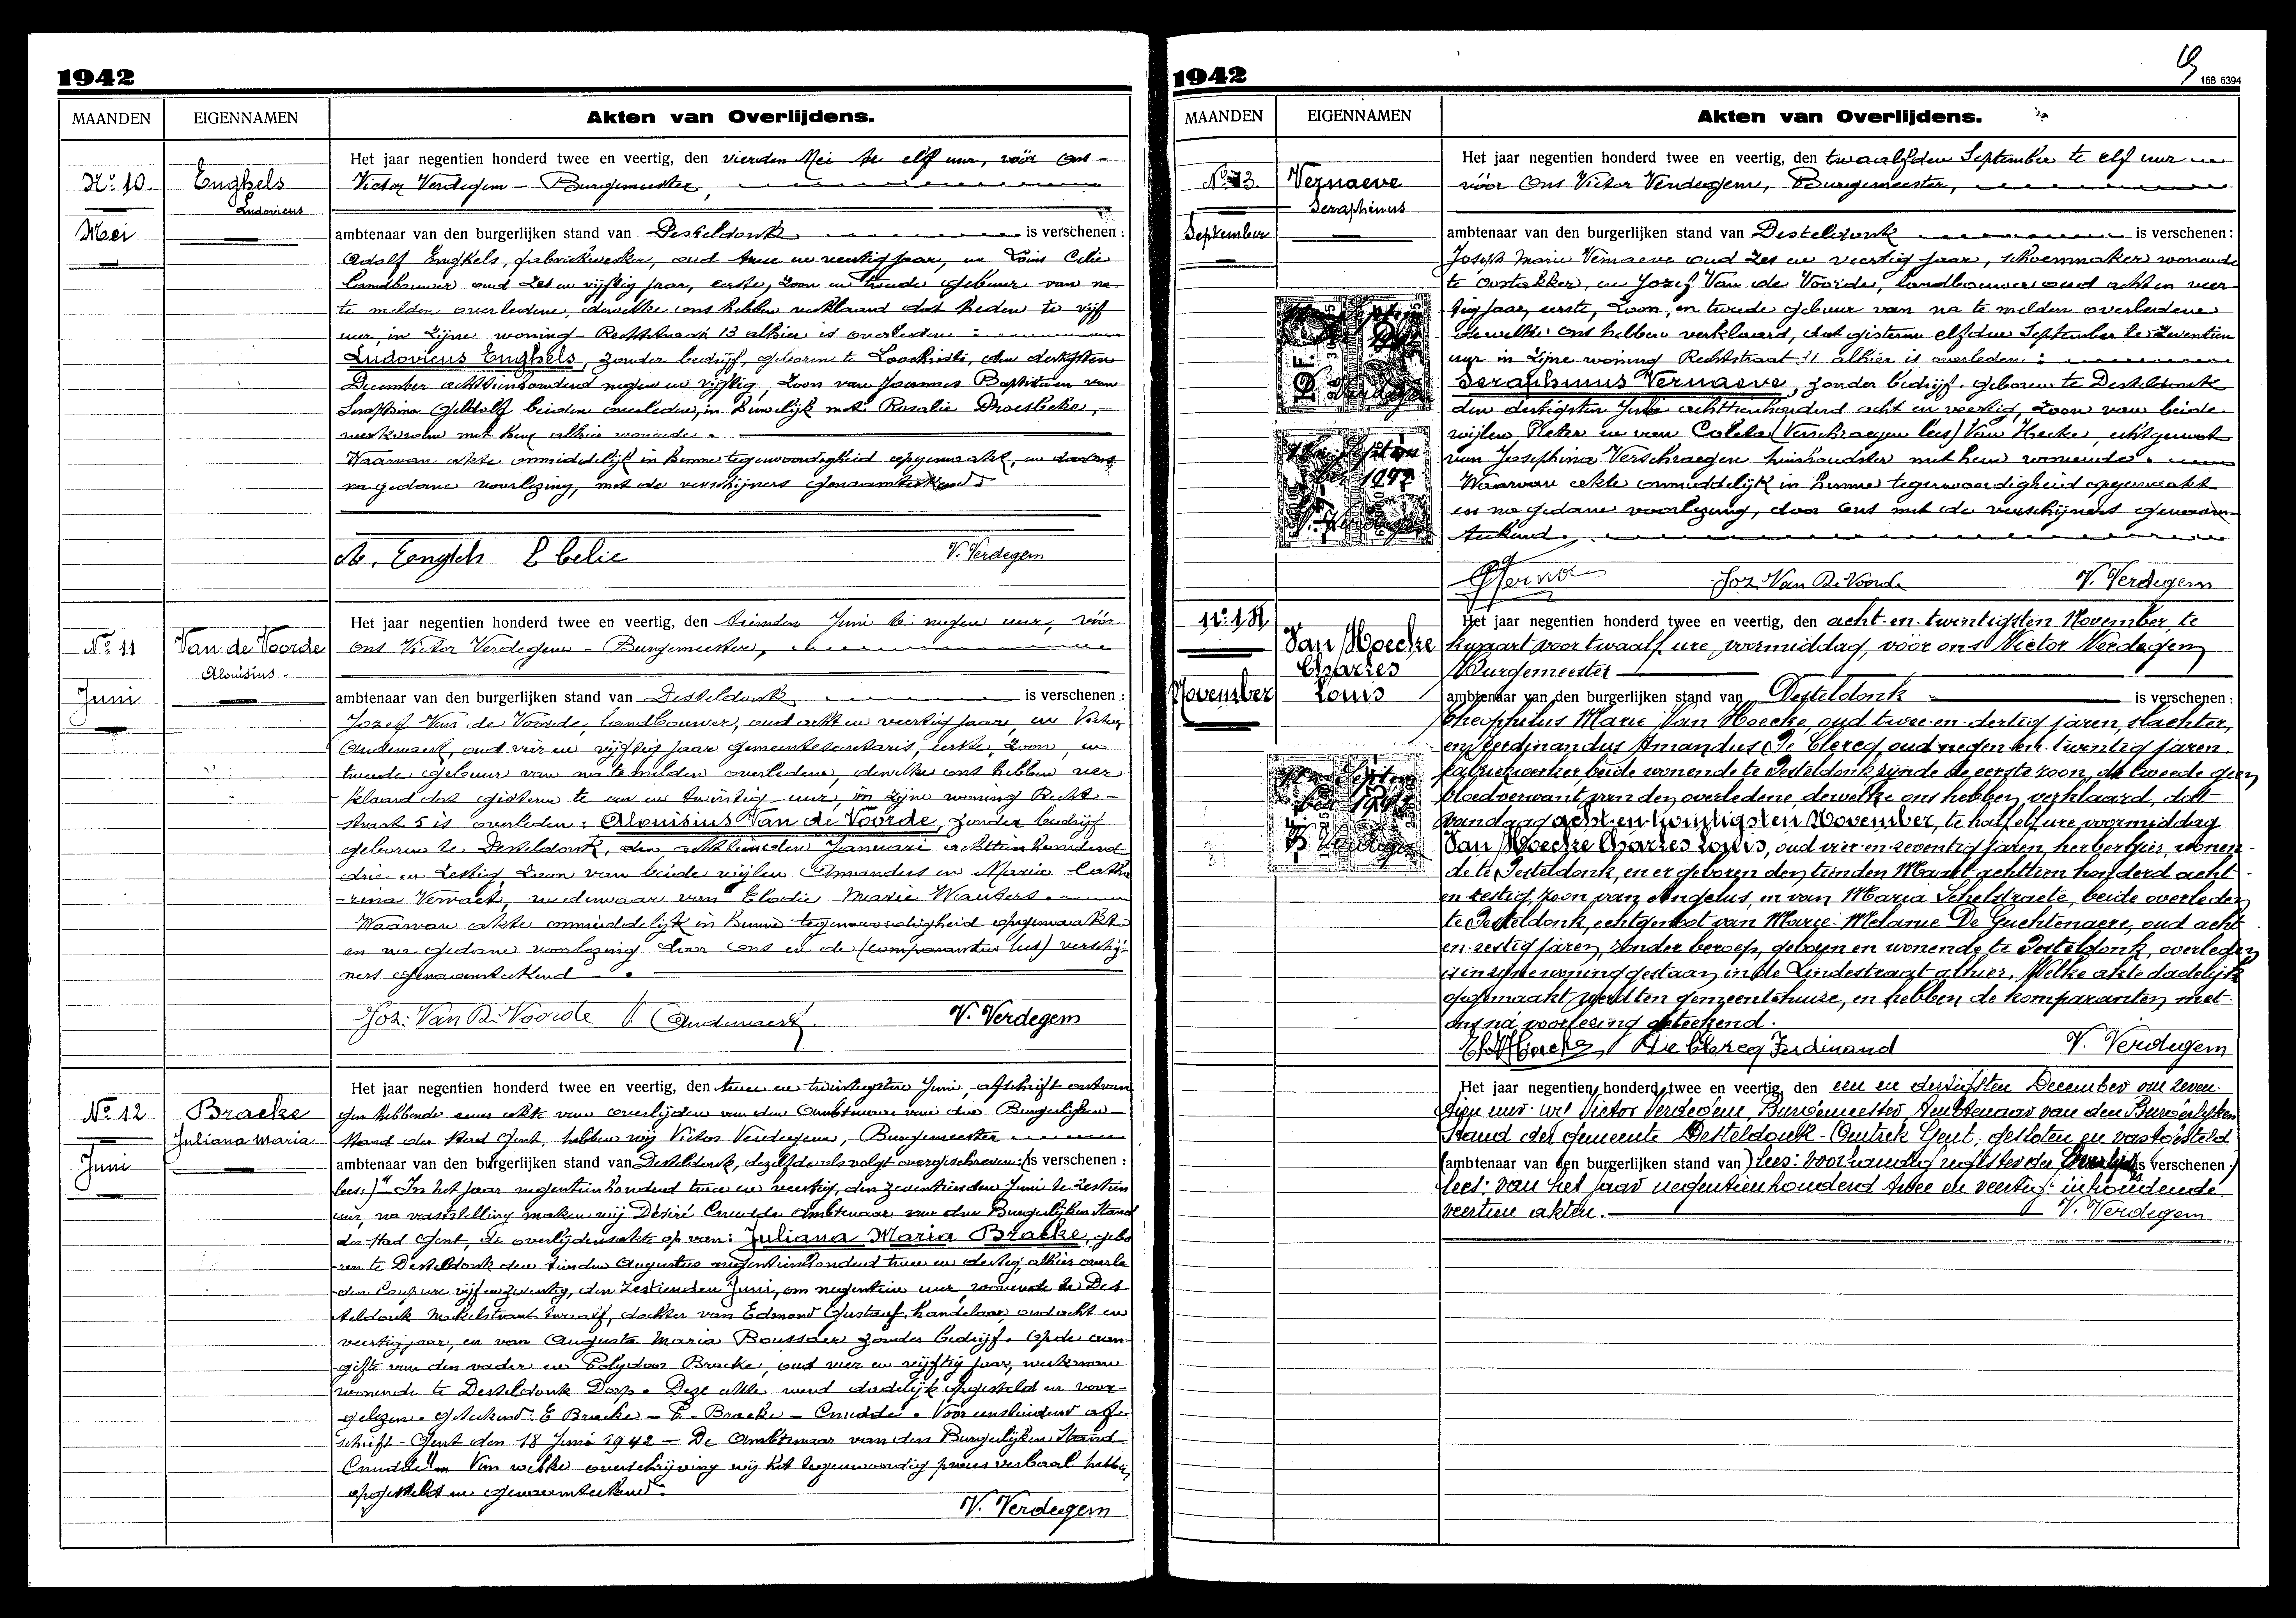 1942
MAANDEN EIGENNAMEN Akten van Overlijdens.
Het jaar negentien honderd twee en veertig, den vierden Mei te elf uur, vóór ons
No. 10 Enghels Victor Verdegem - Burgemeester,
Ludovicus
Mei ambtenaar van den burgerlijken stand van Desteldonk is verschenen:
Adolf Enghels, fabriekwerker, oud twee en veertig jaar, en Louis Celie
landbouwer oud zes en vijftig jaar, eerste, zoon en tweede gebuur van na
te melden overledene, dewelke ons hebben verklaard dat heden te vijf
uur, in zijne woning Rechtstraat 13 alhier is overleden:
Ludovicus Enghels, zonder bedrijf, geboren te Loochristi, den dertigsten
December achttienhonderd negen en vijftig, zoon van Joannes Baptist en van
Seraphina Geldolf beiden overleden, in huwelijk met Rosalie Droesbeke,
werkvrouw met hem alhier wonende.
Waarvan akte onmiddelijk in hunne tegenwoordigheid opgemaakt, en door ons
na gedane voorlezing, met de verschijners genaamteekend
A. Enghels E Celie V. Verdegem
Het jaar negentien honderd twee en veertig, den tienden Juni te negen uur, vóór
No. 11 Van de Voorde ons Victor Verdegem - Burgemeester,
Aloisius.
Juni ambtenaar van den burgerlijken stand van Desteldonk is verschenen:
Jozef Van de Voorde, landbouwer, oud acht en veertig jaar, en Victor
Oudenaert, oud vier en vijftig jaar gemeentesecretaris, eerste, zoon, en
tweede gebuur van na te melden overledene, dewelke ons hebben ver
klaard dat gisteren te een en twintig uur, in zijne woning Recht-
straat 5 is overleden: Aloïsius Van de Voorde, zonder bedrijf
geboren te Desteldonk, den achttienden Januari achttienhonderd
drie en zestig, zoon van beide wijlen Amandus en Maria Catha
-rina Vervaet, weduwaar van Elodie Marie Wauters.
Waarvan akte onmiddelijk in hunne tegenwoordigheid opgemaakt
en na gedane voorlezing door ons en de (comparanten lees) verschij-
ners genaamteekend.
Joz. Van De Voorde V. Oudenaert V. Verdegem
Het jaar negentien honderd twee en veertig, den twee en twintigsten Juni, afschrift ontvan
No. 12 Bracke gen hebbende eener akte van overlijden van den Ambtenaar van den Burgerlijken
Juliana Maria Stand der Stad Gent, hebben wij Victor Verdegem, Burgemeester
Juni ambtenaar van den burgerlijken stand van Desteldonk, dezelfde als volgt overgeschreven: (is verschenen:
lees:) "In het jaar negentienhonderd twee en veertig, den zeventienden Juni te zestien
uur, na vaststelling maken wij Désiré Cnudde Ambtenaar van den Burgerlijken Stand
der Stad Gent, de overlijdensakte op van: Juliana Maria Bracke, gebo
ren te Desteldonk den tienden Augustus negentienhonderd twee en dertig, alhier overle
den Coupure vijf en zeventig, den zestienden Juni, om negentien uur, wonende te Des
teldonk Moskelstraat twaalf, dochter van Edmond Gustaaf, handelaar, oud acht en
veertig jaar, en van Augusta Maria Boussaer zonder bedrijf. Op de aan
gifte van den vader en Polydoor Bracke, oud vier en vijftig jaar, werkman
wonende te Desteldonk Dorp. Deze akte werd dadelijk opgesteld en voor-
gelezen. Geteekend: E Bracke - P. Bracke - Cnudde. Voor eensluidend af
schrift - Gent den 18 Juni 1942 - De Ambtenaar van den Burgerlijken Stand
Cnudde". Van welke overschrijving wij het tegenwoordig proces verbaal hebben
opgesteld en genaamteekend.
V. Verdegem
1942
168 6394
MAANDEN EIGENNAMEN Akten van Overlijdens.
Het jaar negentien honderd twee en veertig, den twaalfden September te elf uur
No. 13 Vernaeve vóór Ons Victor Verdegem, Burgemeester,
Seraphinus
September ambtenaar van den burgerlijken stand van Desteldonk is verschenen:
Joseph Marie Vernaeve oud zes en veertig jaar, schoenmaker wonende
te Oostakker, en Jozef Van de Voorde, landbouwer oud acht en veer
tig jaar, eerste, zoon, en tweede gebuur van na te melden overledene
dewelke ons hebben verklaard, dat gisteren elfden September te zeventien
uur in zijne woning Rechtstraat 31 alhier is overleden:
Seraphinus Vernaeve, zonder bedrijf, geboren te Desteldonk
den dertigsten Julie achttienhonderd acht en veertig, zoon van beide
wijlen Pieter en van Coleta (Verschraegen lees) Van Hecke, echtgenoot
van Josephina Verschraegen huishoudster met hem wonende.
Waarvan akte onmiddelijk in hunne tegenwoordigheid opgemaakt
en na gedane voorlezing, door ons met de verschijners genaam-
teekend.
Joz. Van De Voorde V. Verdegem
No. 14 Het jaar negentien honderd twee en veertig, den acht-en-twintigsten November, te
Van Hoecke kwaart voor twaalf ure, voormiddag, vóór ons Victor Verdegem
Charles Burgemeester
November Louis ambtenaar van den burgerlijken stand van Desteldonk is verschenen:
Theophilus Marie Van Hoecke, oud twee-en-dertig jaren, slachter,
en Ferdinandus Amandus De Clercq, oud negen-en-twintig jaren.
fabriekwerker, beide wonende te Desteldonk zijnde de eerste zoon, de tweede geen
bloedverwant van den overledene, dewelke ons hebben verklaard, dat
vandaag acht-en-twintigsten November, te half elf ure, voormiddag
Van Hoecke Charles Louis, oud vier-en-zeventig jaren, herbergier, wonen-
de te Desteldonk, en er geboren den tienden Maart achttien honderd acht-
en-zestig, zoon van Angelus, en van Maria Schelstraete, beide overleden
te Desteldonk, echtgenoot van Marie-Melanie De Guchtenaere, oud acht-
en-zestig jaren, zonder beroep, geboren en wonende te Desteldonk, overleden
is in zijne woning gestaan in de Lindestraat alhier. Welke akte dadelijk
opgemaakt werd ten gemeentehuize, en hebben de komparanten met-
ons na voorlezing geteekend.
De Clercq Ferdinand V. Verdegem
Het jaar negentien honderd twee en veertig, den een en dertigsten December om zeven-
tien uur. wij Victor Verdegem, Burgemeester, Ambtenaar van den Burgerlijken
Stand der gemeente Desteldonk - Omtrek Gent, gesloten en vastgesteld
(ambtenaar van den burgerlijken stand van) lees: voorhandig register der Overlijdens is verschenen:)
lees: van het jaar negentienhonderd twee en veertig inhoudende
veertien akten. V. Verdegem